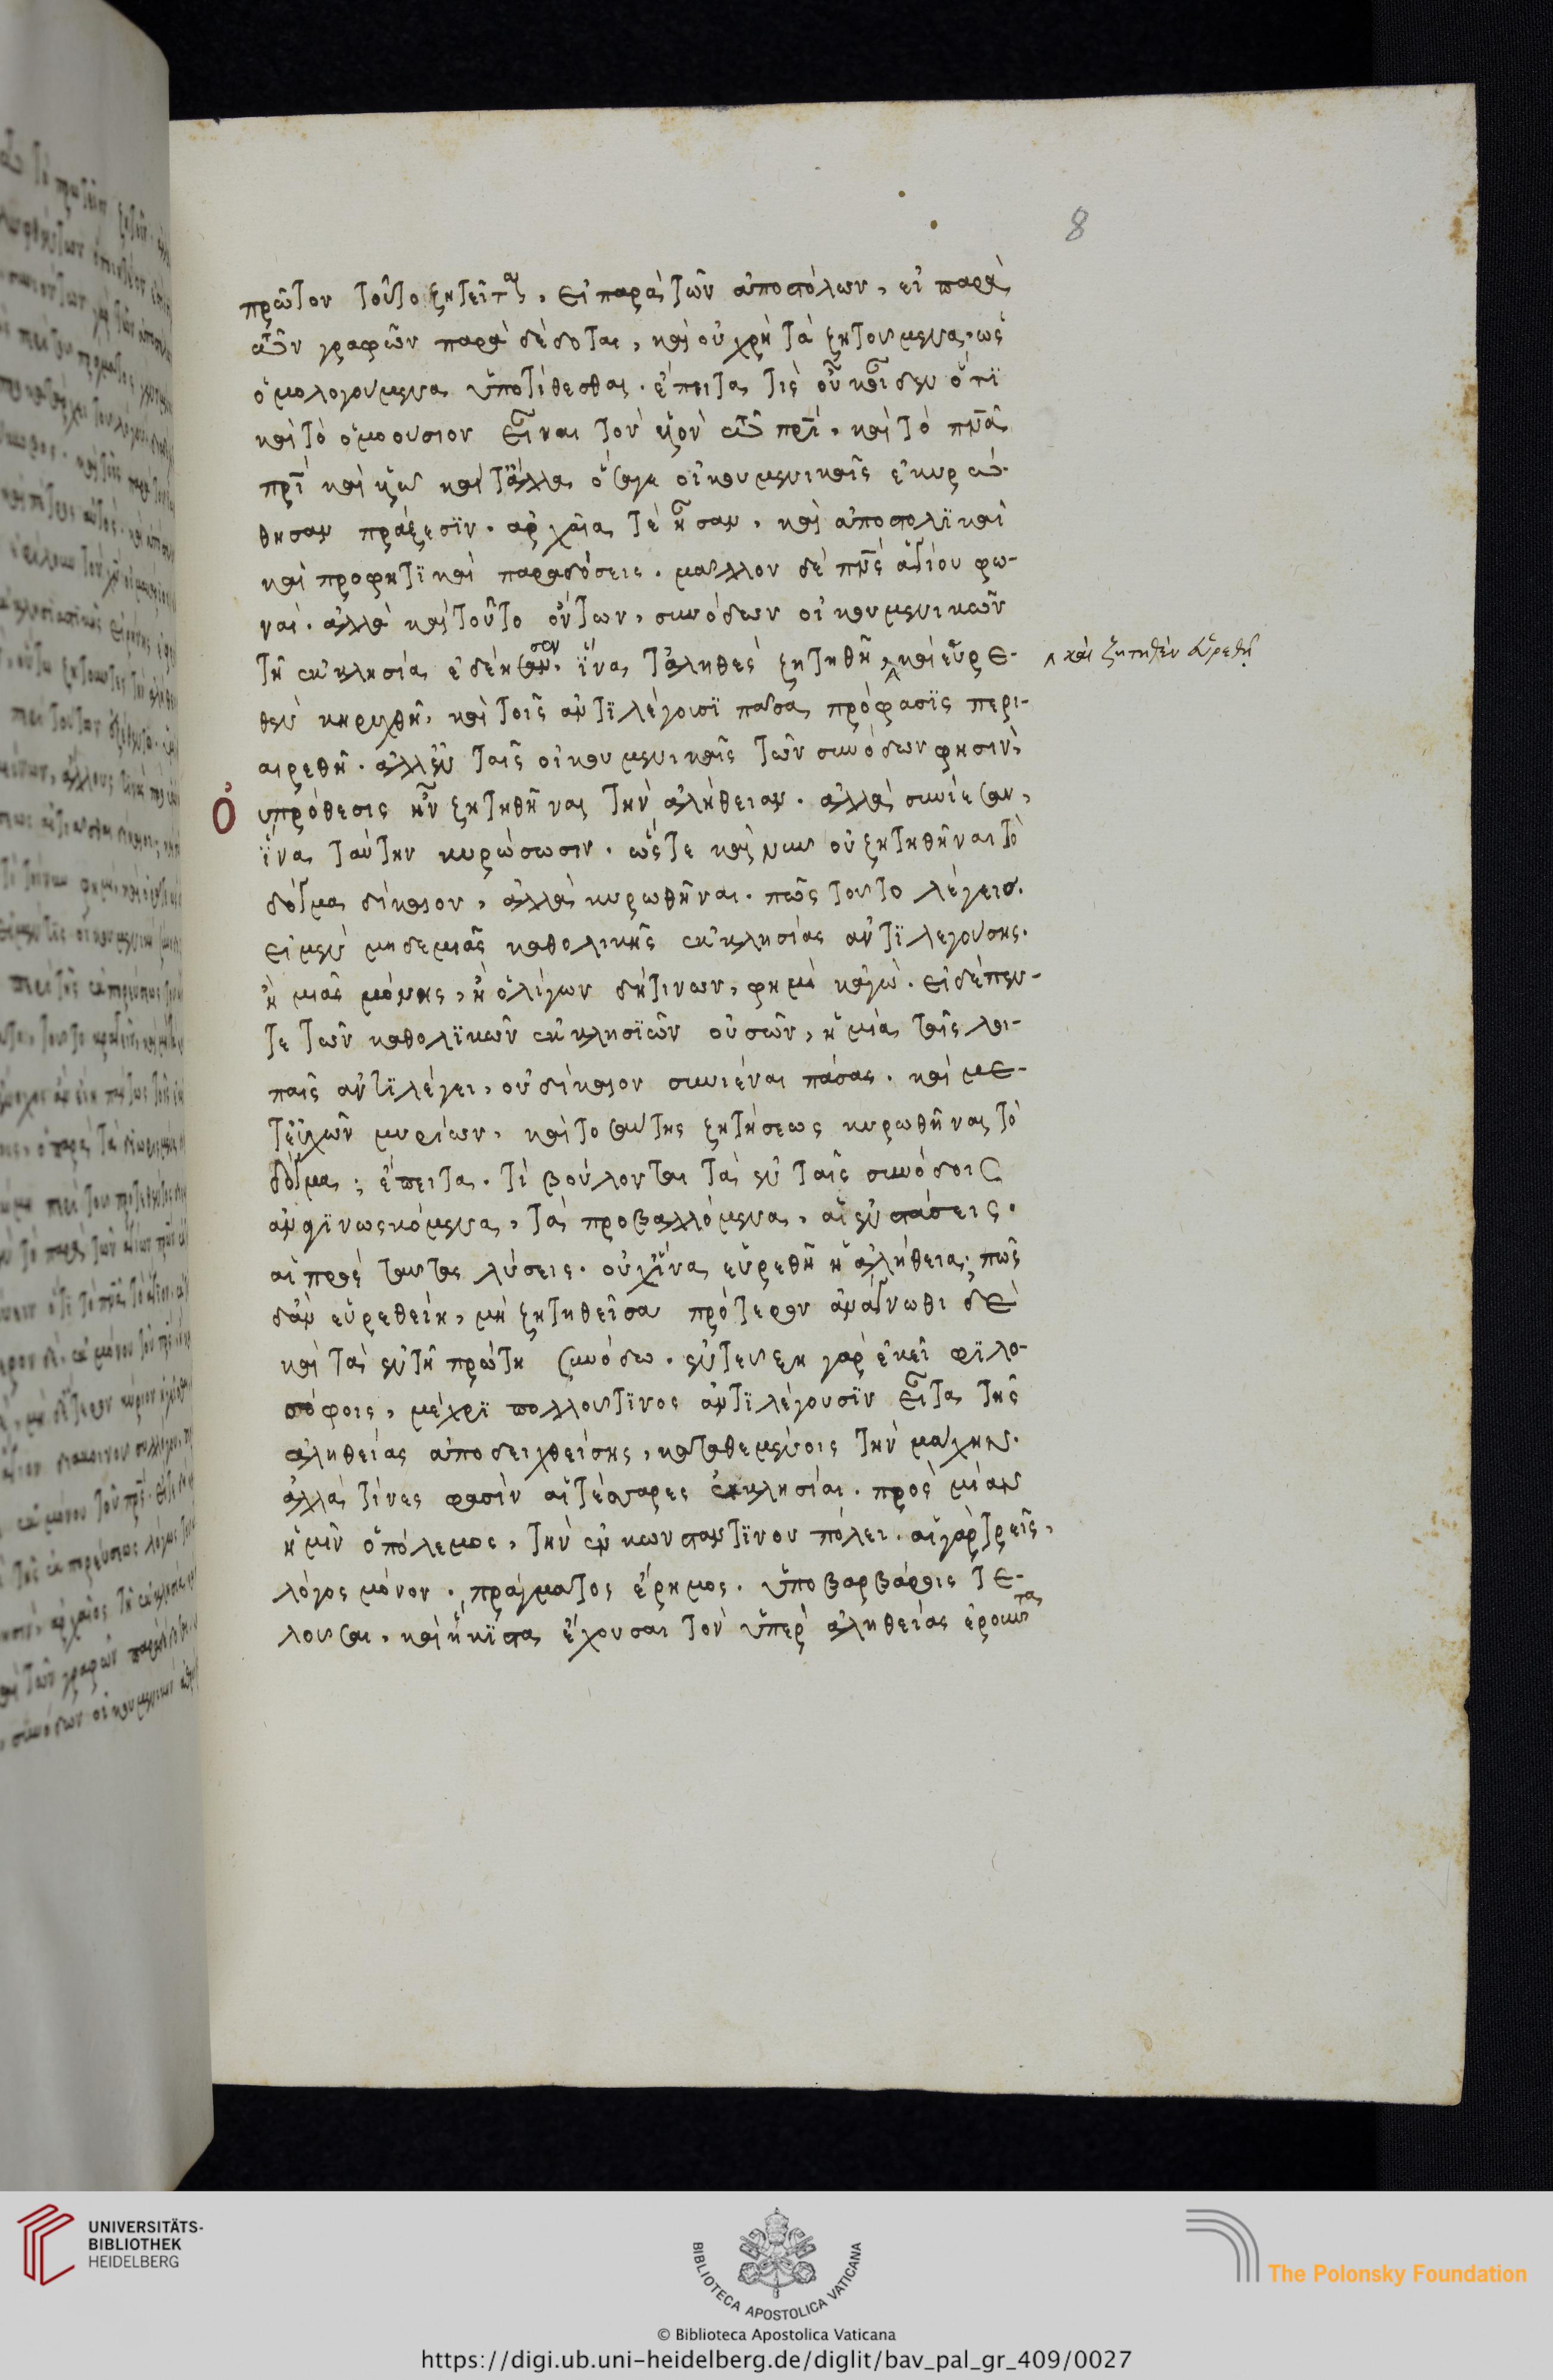 8
πρῶτον τοῦτο ζητεῖται, εἰ παρὰ τῶν ἀποστόλων, εἰ παρὰ
τῶν γραφῶν παραδέδοται, καὶ οὐ χρὴ τὰ ζητούμενα, ὡς
ὁμολογούμενα ὑποτίθεσθαι. ἔπειτα τίς οὐκ οἶδεν ὅτι
καὶ τὸ ὁμοούσιον εἶναι τὸν υἱὸν τῶ πρι, καὶ τὸ πνα
πρι καὶ υἱῶ καὶ τἄλλα ὅσα γε οἰκουμενικαῖς ἐκυρώ-
θησαν πράξεσιν. ἀρχαῖα τὲ ἦσαν, καὶ ἀποστολικαὶ
καὶ προφητικαὶ παραδόσεις. μᾶλλον δὲ πνς ἁγίου φω-
ναί. ἀλλὰ καὶ τοῦτο ὄντων, συνόδων οἰκουμενικῶν
τῆ ἐκκλησία ἐδέησεν. ἵνα τἀληθὲς ζητηθῆ, καὶ εὑρε-
^ καὶ ζητηθὲν εὑρεθῆ
θὲν κηρυχθῆ, καὶ τοῖς ἀντιλέγουσι πᾶσα πρόφασις περι-
αιρεθῆ. ἀλλ' ἐν ταῖς οἰκουμενικαῖς τῶν συνόδων φησὶν,
Οὐ πρόθεσις ἦν ζητηθῆναι τὴν ἀλήθειαν. ἀλλὰ συνίεσαν,
ἵνα ταύτην κυρώσωσιν. ὥστε καὶ νῦν οὐ ζητηθῆναι τὸ
δόγμα δίκαιον, ἀλλὰ κυρωθῆναι. πῶς τοῦτο λέγεις.
εἰ μὲν μηδεμιᾶς καθολικῆς ἐκκλησίας ἀντιλεγούσης.
ἢ μιᾶς μόνης, ἢ ὀλίγων δή τινων, φημὶ κἀγώ. εἰ δὲ πέν-
τε τῶν καθολικῶν ἐκκλησιῶν οὐσῶν, ἡ μία ταῖς λοι-
παῖς ἀντιλέγει, οὐ δίκαιον συνιέναι πάσας. καὶ με-
τ' εὐχῶν μυρίων, καὶ τοσαύτης ζητήσεως κυρωθῆναι τὸ
δόγμα; ἔπειτα. τί βούλονται τὰ ἐν ταῖς συνόδοις
ἀναγινωσκόμενα, τὰ προβαλλόμενα, αἱ ἐνστάσεις.
αἱ πρὸς ταύτας λύσεις. οὐχ ἵνα εὑρεθῆ ἡ ἀλήθεια; πῶς
δ' ἂν εὑρεθείη, μὴ ζητηθεῖσα πρότερον ἀνάγνωθι δὲ
καὶ τὰ ἐν τῆ πρώτη συνόδω. ἐντεύξη γὰρ ἐκεῖ φιλο-
σόφοις, μέχρι πολλοῦ τινος ἀντιλέγουσιν εἶτα τῆς
ἀληθείας ἀποδειχθείσης, καταθεμένοις τὴν μάχην.
ἀλλὰ τίνες φασὶν αἱ τέσσαρες ἐκκλησίαι. πρὸς μίαν
ἡμῖν ὁ πόλεμος, τὴν ἐν κωνσταντίνου πόλει. αἱ γὰρ τρεῖς,
λόγος μόνον. πράγματος ἔρημος. ὑπὸ βαρβάροις τε-
λοῦσαι, καὶ ἥκιστα ἔχουσαι τὸν ὑπὲρ ἀληθείας ἐροῦντα
UNIVERSITÄTS-
BIBLIOTHEK
HEIDELBERG
BIBLIOTECA APOSTOLICA VATICANA
The Polonsky Foundation
© Biblioteca Apostolica Vaticana
https://digi.ub.uni-heidelberg.de/diglit/bav_pal_gr_409/0027